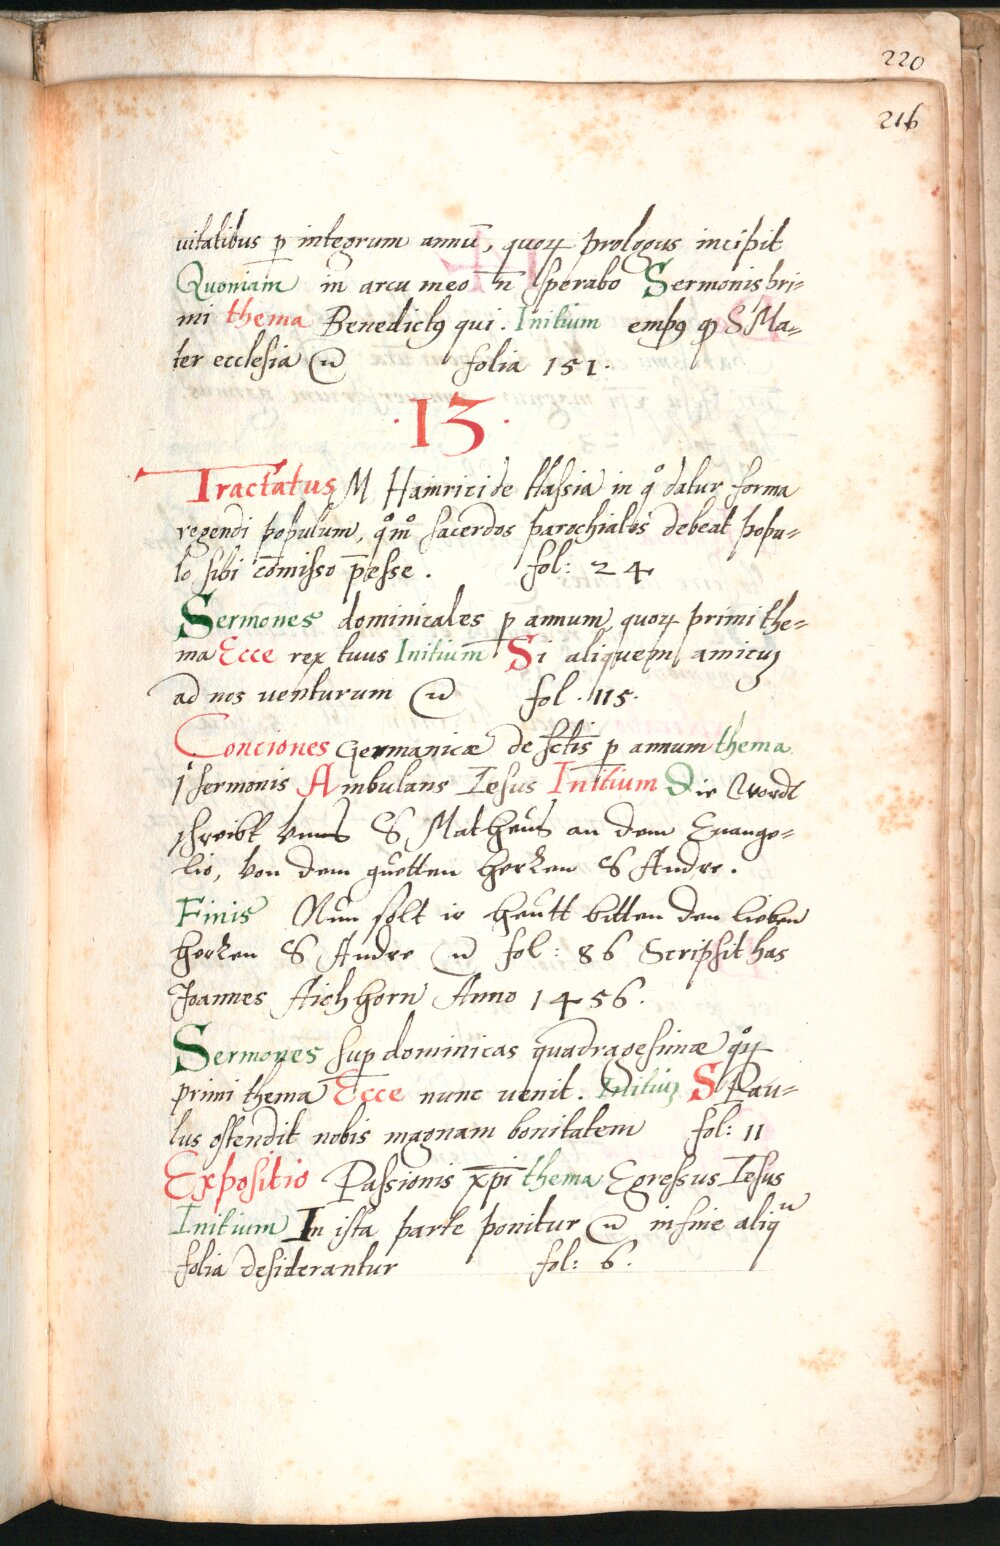 220
216
uitatibus p integrum annū, quoꝝ prologus incipit
Quoniam in arcu meo n̄ sperabo Sermonis pri-
mi thema Benedictꝰ qui. Initium empꝰ ꝙ S Ma-
ter ecclesia &c folia 151.
·13·
Tractatus M Hainrici de Hassia in qͦ datur forma
regendi populum, qͦmͦ sacerdos parochialis debeat popu-
lo sibi com̄isso p̄esse. fol: 24
Sermones dominicales p annum quoꝝ primi the-
ma Ecce rex tuus Initium Si aliquem amicuȝ
ad nos venturum &c fol. 115.
Conciones Germanicæ de sctis p annum thema
1 sermonis Ambulans Iesus Initium Die Wordt
schreibt vnns S Matheus an dem Euange-
lio, von dem guetten herren S Andre.
Finis Nun solt ir heutt bitten den lieben
herren S Andre &c fol: 86 Scripsit has
Joannes Aichhorn Anno 1456.
Sermones sup dominicas quadragesimæ qͦꝝ
primi thema Ecce nunc uenit. Initiuȝ S Pau-
lus ostendit nobis magnam bonitatem fol: 11
Expositio Passionis xp̄i thema Egressus Iesus
Initium In ista parte ponitur &c in fine aliq
folia desiderantur fol: 6.